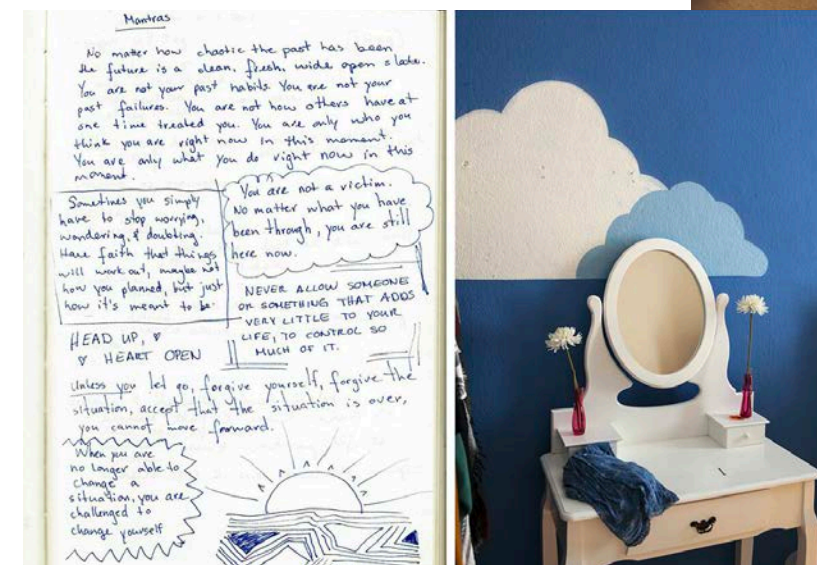 Mantras
No matter how chaotic the past has been
the future is a clean, fresh, wide open slate.
You are not your past habits. You are not your
past failures. You are not how others have at
one time treated you. You are only who you
think you are right now in this moment.
You are only what you do right now in this
moment.
Sometimes you simply
have to stop worrying,
wondering, & doubting.
Have faith that things
will work out, maybe not
how you planned, but just
how it's meant to be.
You are not a victim.
No matter what you have
been through, you are still
here now.
NEVER ALLOW SOMEONE
OR SOMETHING THAT ADDS
VERY LITTLE TO YOUR
LIFE, TO CONTROL SO
MUCH OF IT.
HEAD UP, ♥
♥ HEART OPEN
Unless you let go, forgive yourself, forgive the
situation, accept that the situation is over,
you cannot move forward.
When you are
no longer able to
change a
situation, you are
challenged to
change yourself